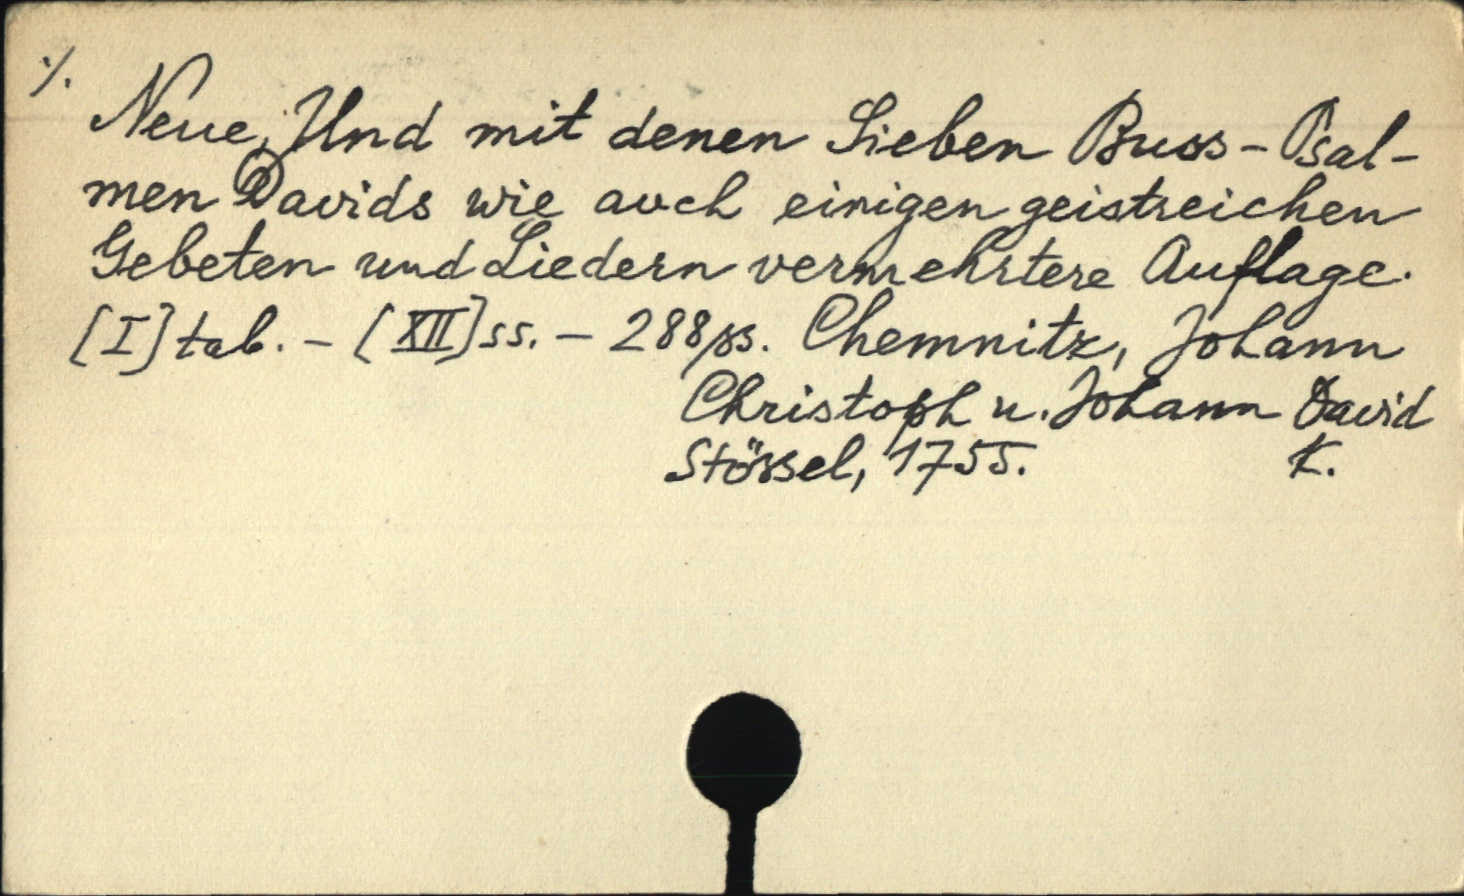 ./.
Neue, Und mit denen Sieben Buss-Psal-
men Davids wie auch einigen geistreichen
Gebeten und Liedern vermehrtere Auflage.
[I] tab. - [XII] ss. - 288 ss. Chemnitz, Johann
Christoph u. Johann David
Stössel, 1755. K.